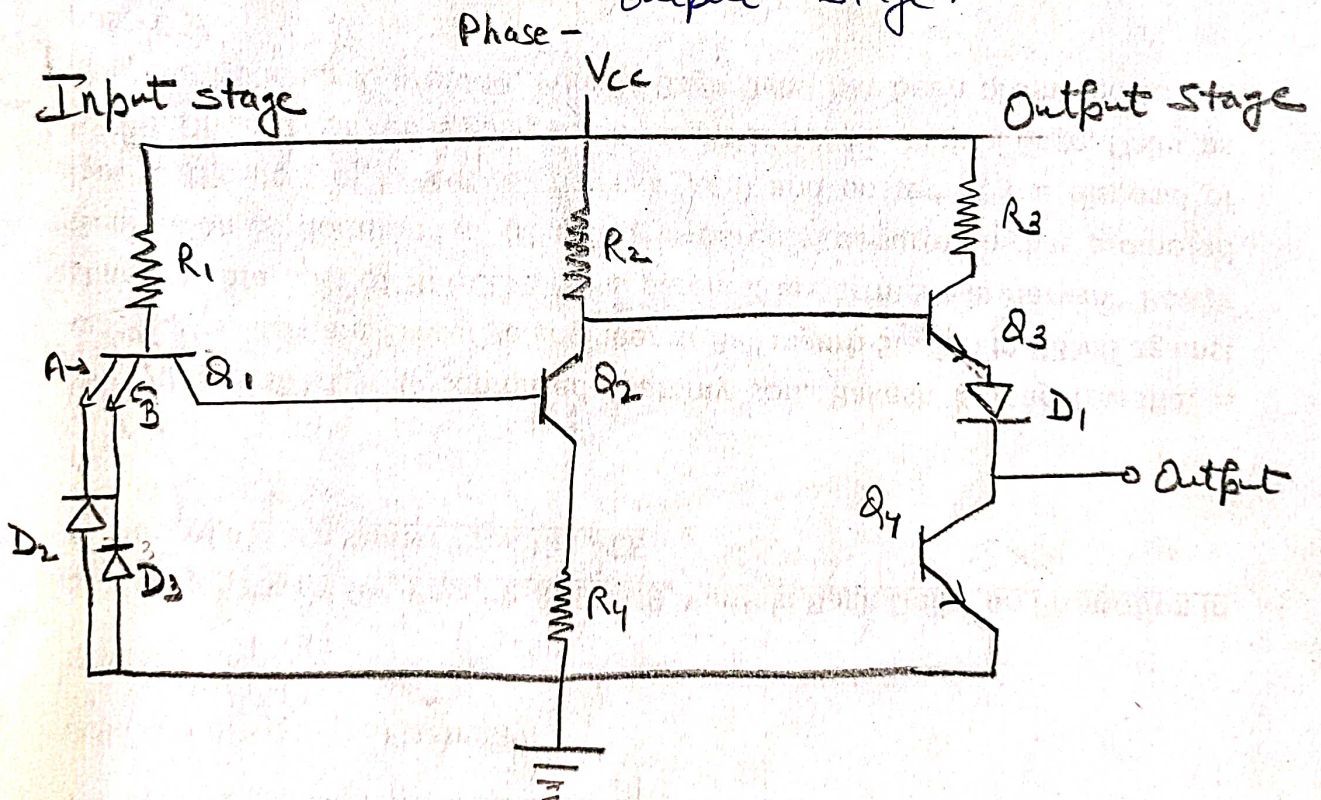 Output Stage.
Phase -
Vcc
Input stage
Output Stage
R1
R2
R3
A→
B
Q1
Q2
Q3
D1
Output
Q4
D2
D3
R4